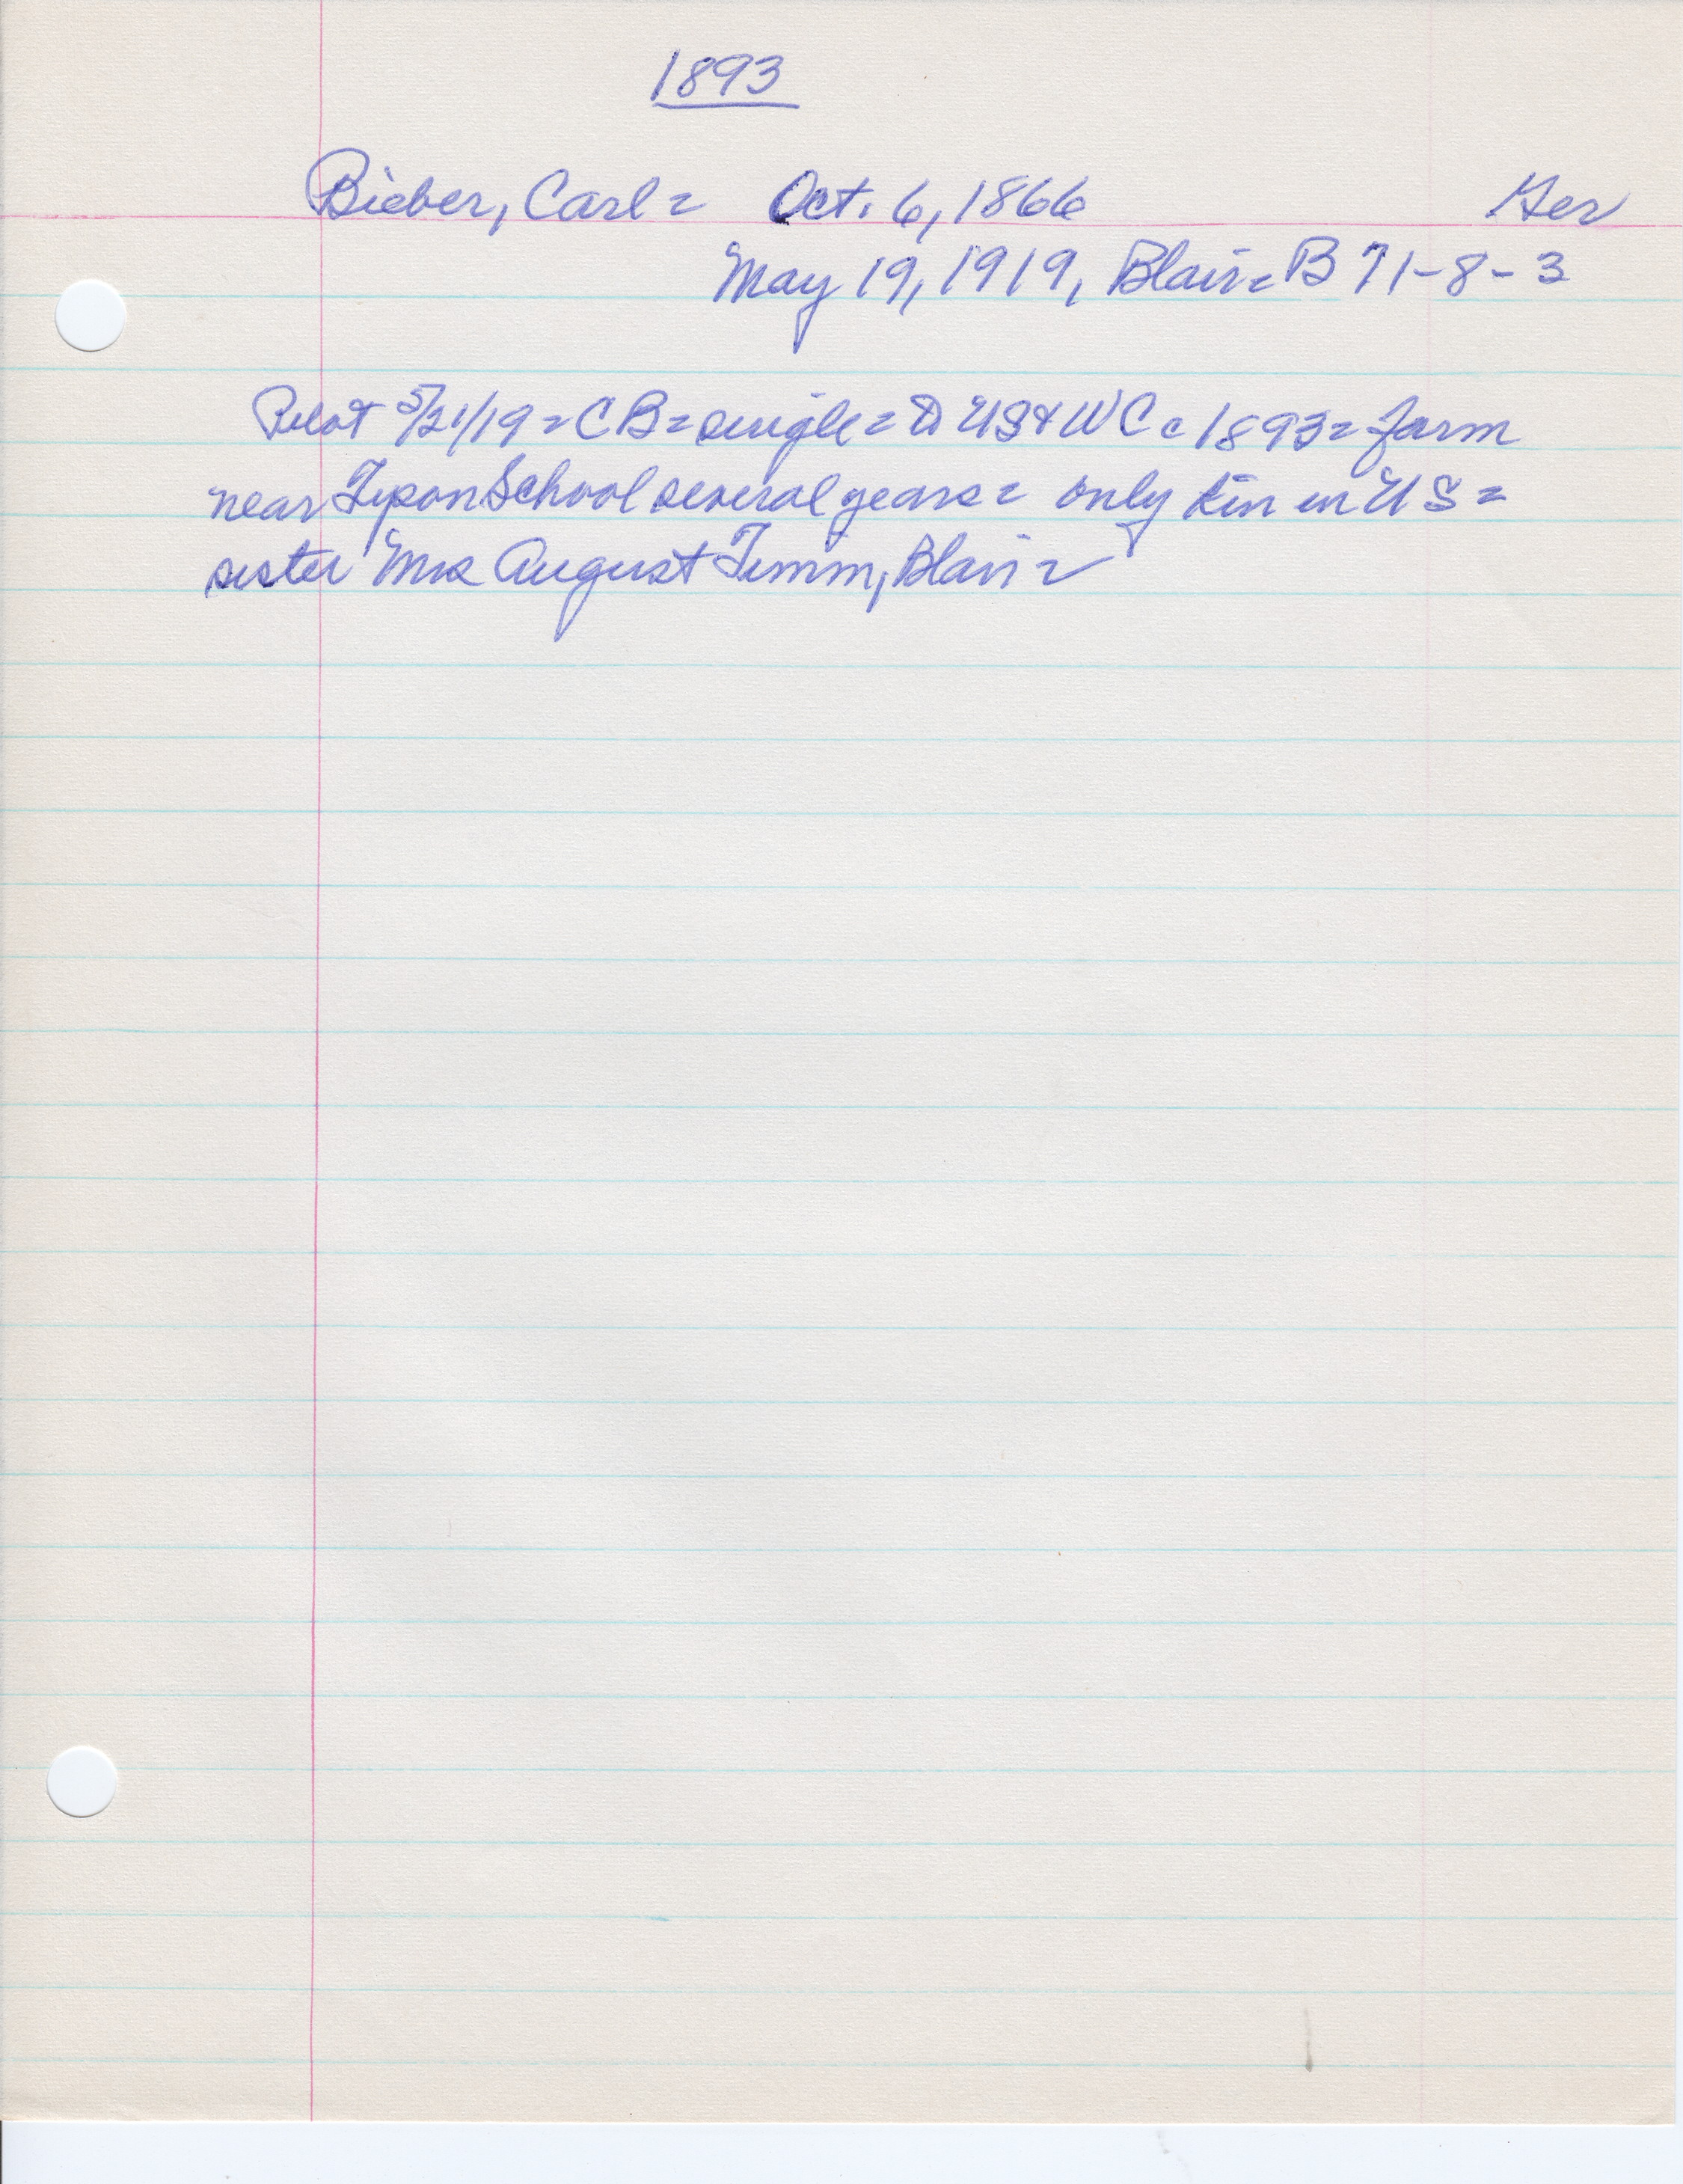 1893
Bieber, Carl = Oct. 6, 1866 Ger
May 19, 1919, Blair = B 71-8-3
Pilot 5/21/19 = CB = single = US & WC c 1893 = farm
near School several years = only kin in US =
sister Mrs August Timm, Blair =